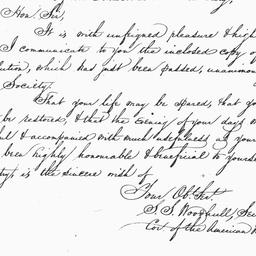 Hon. Sir,
It is with unfeigned pleasure & high
I communicate to you the inclosed copy of
lution, which has just been passed, unanimou
Society.
That your life may be spared, that yo
be restored, & that the evening of your days m
ful & accompanied with much usefulness, as your
been highly honourable & beneficial to yourse
ty, is the sincere wish of
Your Ob. Svt.
S. S. Woodhull, Sec
Cor. of the American